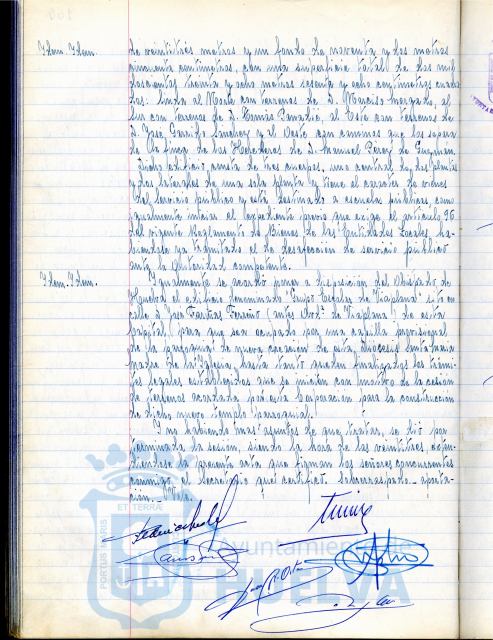 Idem. Idem.
de veintitrés metros y un fondo de noventa y dos metros
cincuenta centímetros, con una superficie total de dos mil
doscientos treinta y ocho metros sesenta y ocho centímetros cuadra
dos: Linda al Norte con terrenos de D. Narciso Morgado, al
Sur con terrenos de D. Tomás al Este con terrenos de
D. José Garrido Sánchez y al Oeste con caminos que los separa
de la finca de los Herederos de D. Manuel Pérez de Guzmán.
Dicho edificio consta de tres cuerpos, uno central de dos plantas
y dos laterales de una sola planta y tiene el carácter de bienes
del servicio público y está destinado a escuelas públicas, como
igualmente iniciar el expediente previo que exige el artículo 96
del vigente Reglamento de Bienes de las Entidades Locales, ha-
biéndose ya tramitado el de desafección de servicio público
ante la Autoridad competente.
Idem. Idem.
Igualmente se acordó poner a disposición del Obispado de
Huelva el edificio denominado "Grupo Escolar de Viaplana" sito en
calle D. José Fariñas Ferreño (antes Avdª de Viaplana) de esta
capital, para que sea ocupado por una capilla provisional
de la parroquia de nueva creación de esta diócesis Santa María
Madre de la Iglesia, hasta tanto queden finalizados los trámi-
tes legales establecidos que se inicien con motivo de la cesión
de terrenos acordada por esta Corporación para la construcción
de dicho nuevo templo parroquial.
Y no habiendo más asuntos de que tratar, se dió por
terminada la sesión, siendo la hora de las veintitrés, exten-
diéndose la presente acta que firman los señores concurrentes
conmigo el Secretario que certifico.
ET TERRÆ
PORTUS MARIS
Ayuntamiento de
HUELVA